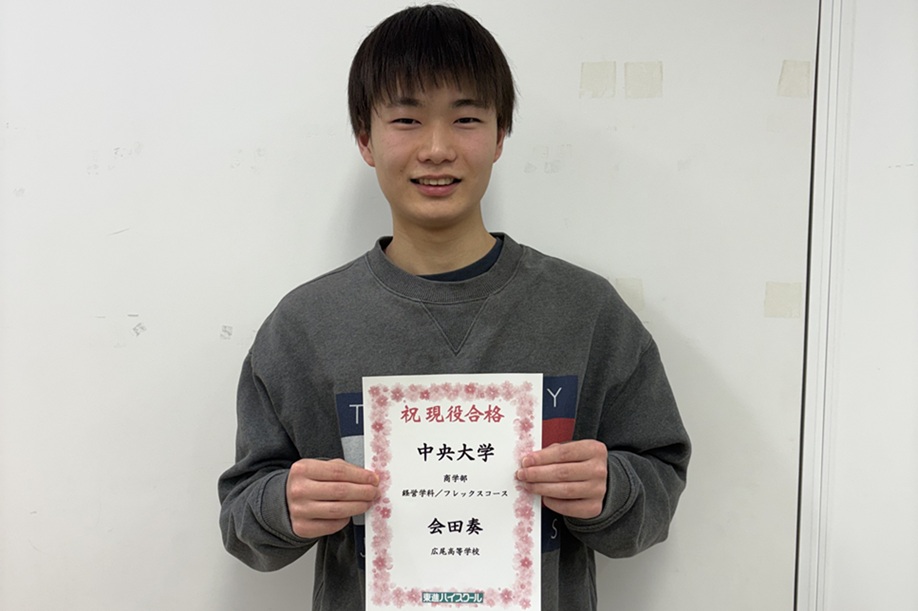 祝 現役合格
中央大学
商学部
経営学科／フレックスコース
会田奏
広尾高等学校
東進ハイスクール
T
Y
S